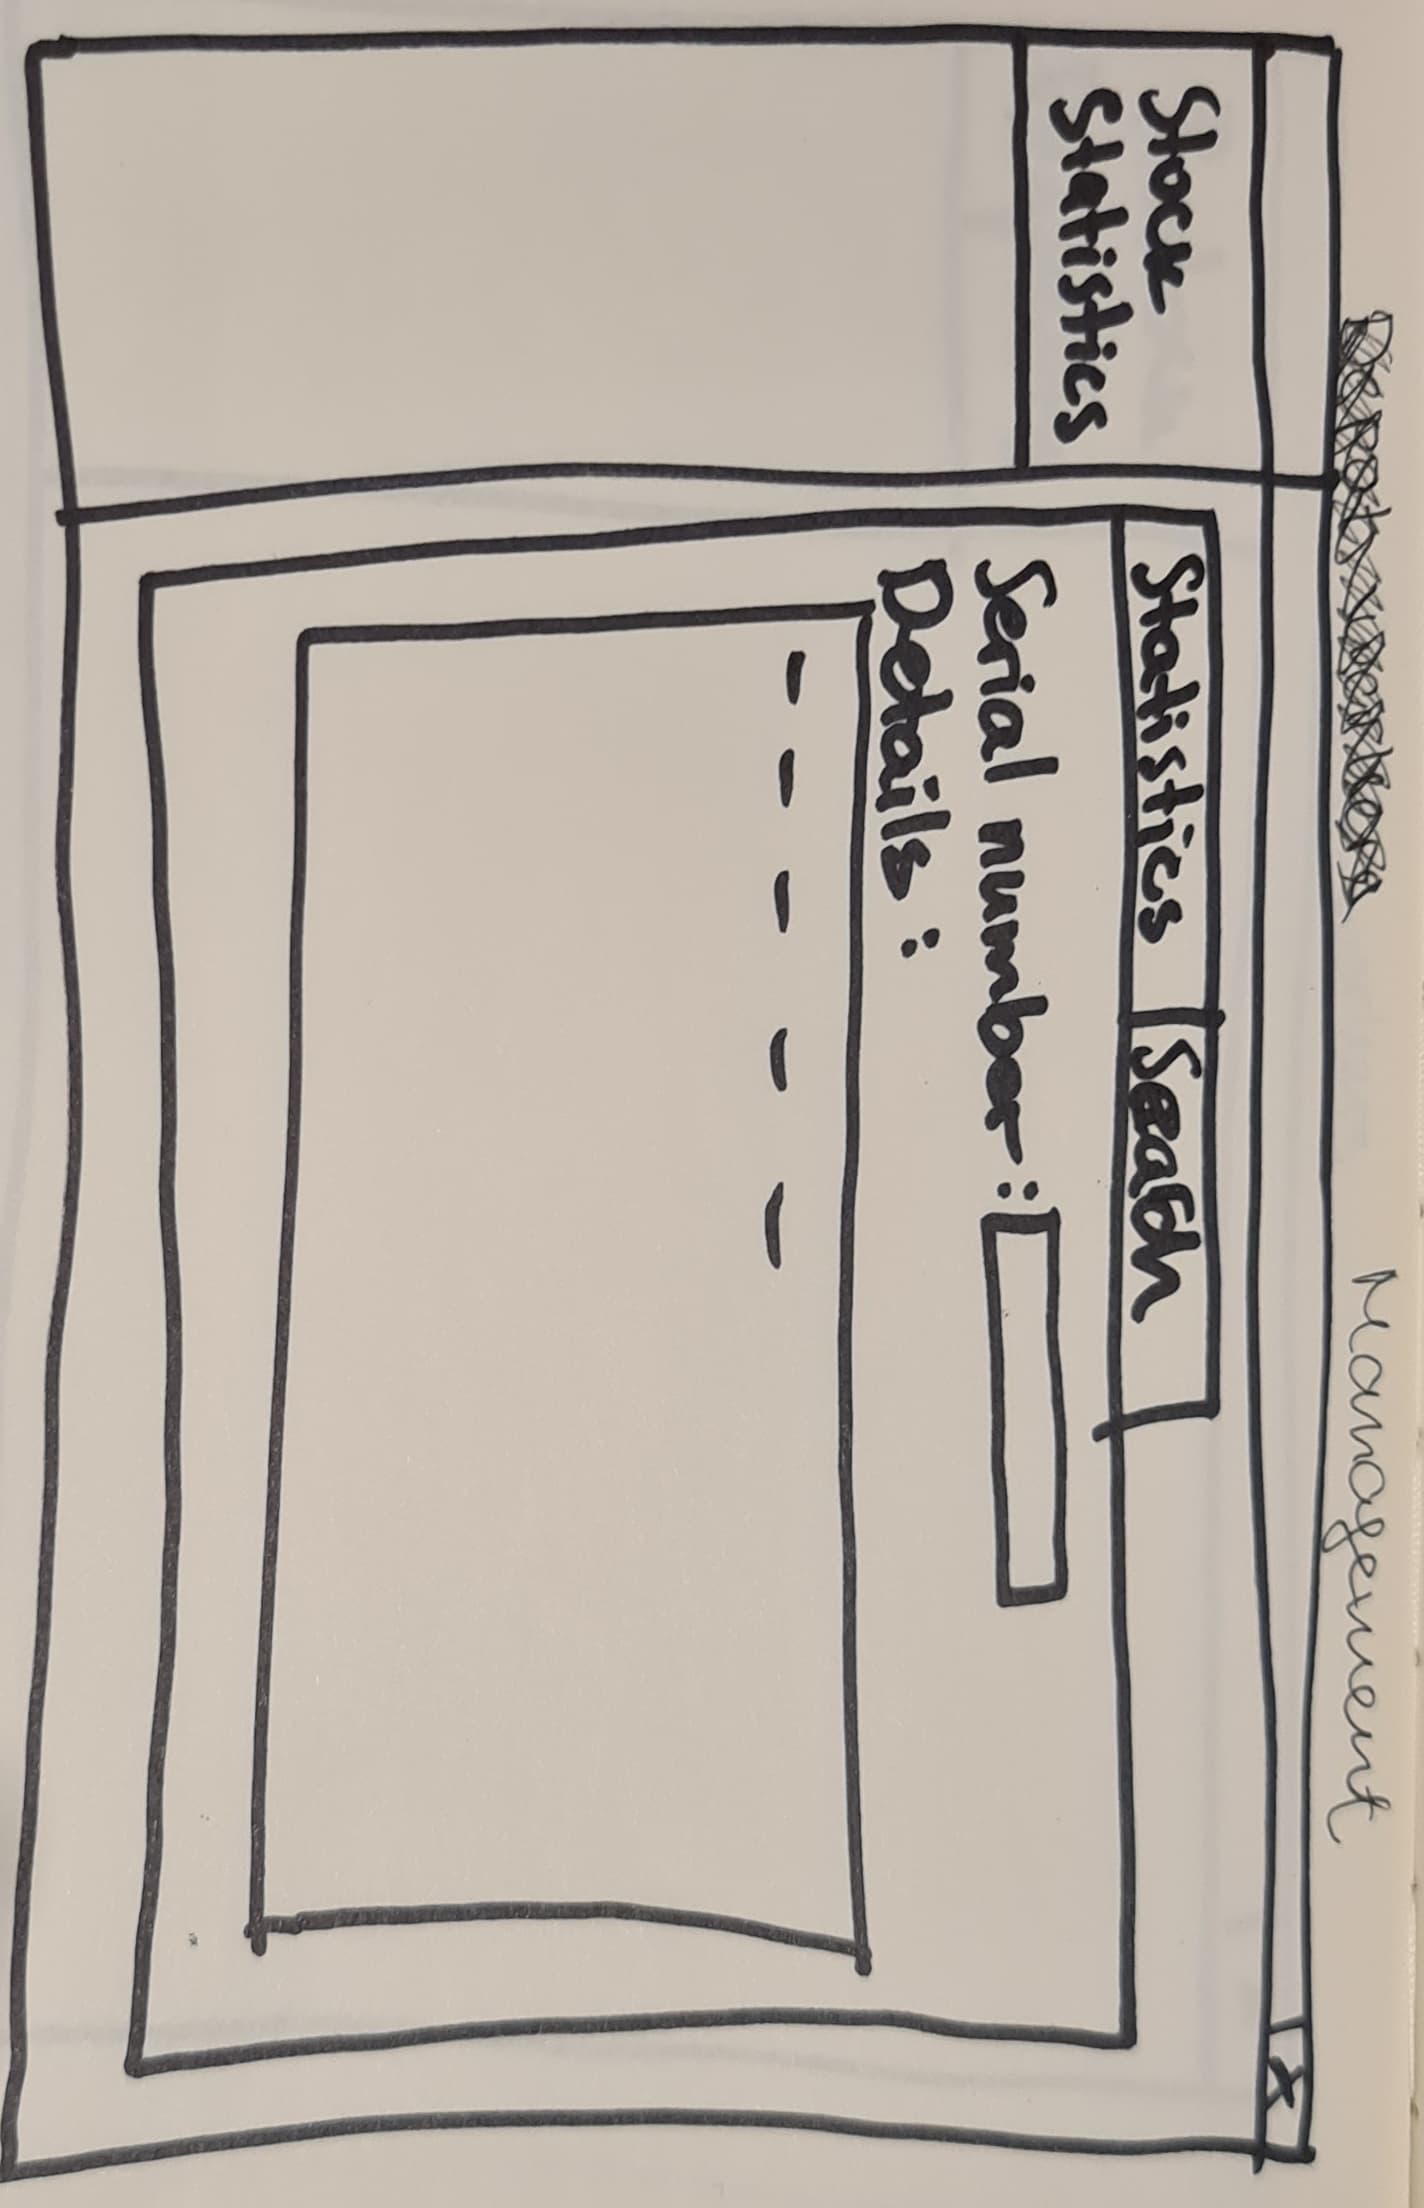 Management
X
Stock
Statistics
Statistics Search
Serial number:
Details:
- - - - -